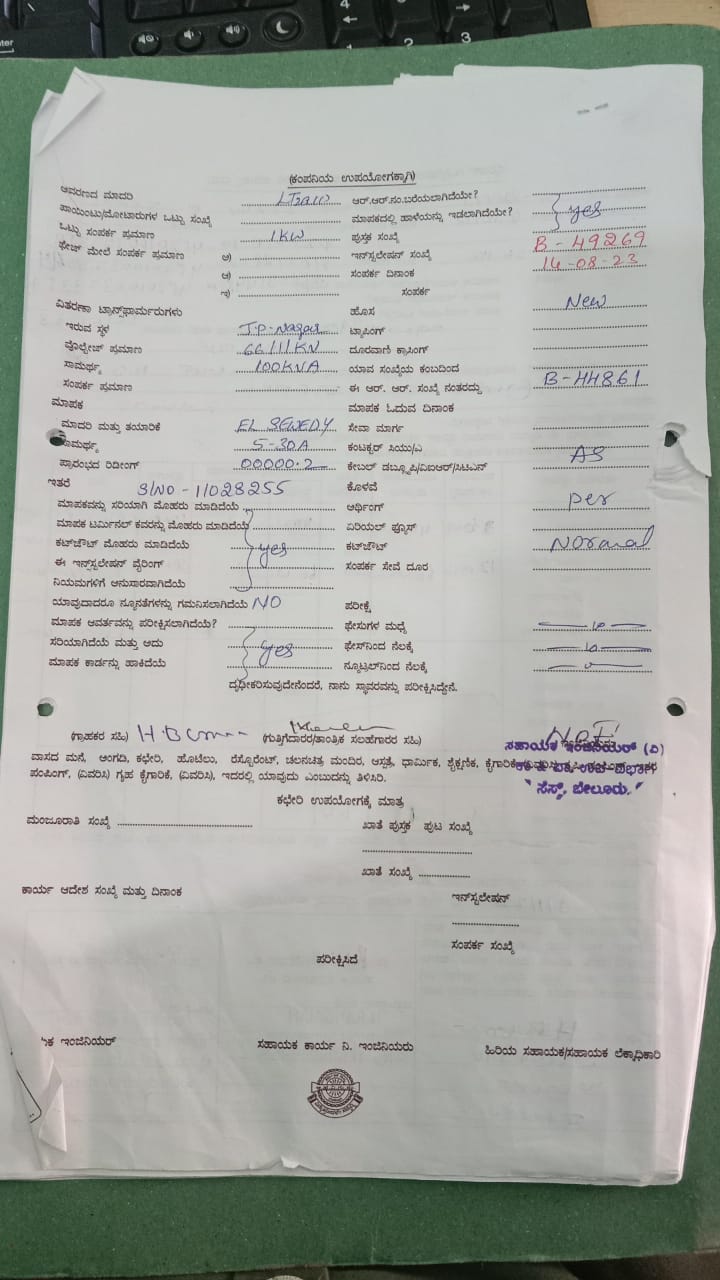 (ಕಂಪನಿಯ ಉಪಯೋಗಕ್ಕಾಗಿ)
ಆವರಣದ ಮಾದರಿ LT2aii ಆರ್.ಆರ್.ನಂ.ಬರೆಯಲಾಗಿದೆಯೇ?
ಪಾಯಿಂಟು/ಮೋಟಾರುಗಳ ಒಟ್ಟು ಸಂಖ್ಯೆ ಮಾಪಕದಲ್ಲಿ ಹಾಳೆಯನ್ನು ಇಡಲಾಗಿದೆಯೇ? yes
ಒಟ್ಟು ಸಂಪರ್ಕ ಪ್ರಮಾಣ 1KW ಪುಸ್ತಕ ಸಂಖ್ಯೆ
ಫೇಜ್ ಮೇಲೆ ಸಂಪರ್ಕ ಪ್ರಮಾಣ ಅ) ಇನ್‌ಸ್ಟಲೇಷನ್ ಸಂಖ್ಯೆ B-49269
ಆ) ಸಂಪರ್ಕ ದಿನಾಂಕ 14-08-23
ಇ) ಸಂಪರ್ಕ
ವಿತರಣಾ ಟ್ರಾನ್ಸ್‌ಫಾರ್ಮರುಗಳು ಹೊಸ New
ಇರುವ ಸ್ಥಳ T.P.Nagar ಟ್ಯಾಸಿಂಗ್
ವೊಲ್ಟೇಜ್ ಪ್ರಮಾಣ 66/11KV ದೂರವಾಣಿ ಕ್ರಾಸಿಂಗ್
ಸಾಮರ್ಥ್ಯ 100KVA ಯಾವ ಸಂಖ್ಯೆಯ ಕಂಬದಿಂದ
ಸಂಪರ್ಕ ಪ್ರಮಾಣ ಈ ಆರ್. ಆರ್. ಸಂಖ್ಯೆ ನಂತರದ್ದು B-44861
ಮಾಪಕ ಮಾಪಕ ಓದುವ ದಿನಾಂಕ
ಮಾದರಿ ಮತ್ತು ತಯಾರಿಕೆ EL SEWEDY ಸೇವಾ ಮಾರ್ಗ
ಸಾಮರ್ಥ್ಯ 5-30A ಕಂಟಕ್ಟರ್ ಸಿಯು/ಎ
ಪ್ರಾರಂಭದ ರಿಡೀಂಗ್ 00000.2 ಕೇಬಲ್ ಡಬ್ಲ್ಯೂಪಿ/ವಿಐಆರ್/ಸಿಟಿಎನ್ AS
ಇತರೆ S/NO-11028255 ಕೊಳವೆ
ಮಾಪಕವನ್ನು ಸರಿಯಾಗಿ ಮೊಹರು ಮಾಡಿದೆಯೆ ಆರ್ಥಿಂಗ್ per
ಮಾಪಕ ಟರ್ಮಿನಲ್ ಕವರನ್ನು ಮೊಹರು ಮಾಡಿದೆಯೆ ಏರಿಯಲ್ ಫ್ಯೂಸ್
ಕಟ್‌ಔಟ್ ಮೊಹರು ಮಾಡಿದೆಯೆ yes ಕಟ್‌ಔಟ್ Normal
ಈ ಇನ್‌ಸ್ಟಲೇಷನ್ ವೈರಿಂಗ್ ಸಂಪರ್ಕ ಸೇವೆ ದೂರ
ನಿಯಮಗಳಿಗೆ ಅನುಸಾರವಾಗಿದೆಯೆ
ಯಾವುದಾದರೂ ನ್ಯೂನತೆಗಳನ್ನು ಗಮನಿಸಲಾಗಿದೆಯೆ NO ಪರೀಕ್ಷೆ
ಮಾಪಕ ಆವರ್ತವನ್ನು ಪರೀಕ್ಷಿಸಲಾಗಿದೆಯೆ? ಫೇಸುಗಳ ಮಧ್ಯೆ
ಸರಿಯಾಗಿದೆಯೆ ಮತ್ತು ಅದು yes ಫೇಸ್‌ನಿಂದ ನೆಲಕ್ಕೆ
ಮಾಪಕ ಕಾರ್ಡನ್ನು ಹಾಕಿದೆಯೆ ನ್ಯೂಟ್ರಲ್‌ನಿಂದ ನೆಲಕ್ಕೆ
ದೃಢೀಕರಿಸುವುದೇನೆಂದರೆ, ನಾನು ಸ್ಥಾವರವನ್ನು ಪರೀಕ್ಷಿಸಿದ್ದೇನೆ.
(ಗ್ರಾಹಕರ ಸಹಿ) (ಗುತ್ತಿಗೆದಾರರ/ತಾಂತ್ರಿಕ ಸಲಹೆಗಾರರ ಸಹಿ)
ಸಹಾಯಕ ಇಂಜಿನಿಯರ್ (ವಿ)
ಸೆಸ್ಕ್, ಬೇಲೂರು.
ವಾಸದ ಮನೆ, ಅಂಗಡಿ, ಕಛೇರಿ, ಹೋಟೆಲು, ರೆಸ್ಟೊರೆಂಟ್, ಚಲನಚಿತ್ರ ಮಂದಿರ, ಆಸ್ಪತ್ರೆ, ಧಾರ್ಮಿಕ, ಶೈಕ್ಷಣಿಕ, ಕೈಗಾರಿಕೆ
ಪಂಪಿಂಗ್, (ವಿವರಿಸಿ) ಗೃಹ ಕೈಗಾರಿಕೆ, (ವಿವರಿಸಿ), ಇದರಲ್ಲಿ ಯಾವುದು ಎಂಬುದನ್ನು ತಿಳಿಸಿರಿ.
ಕಛೇರಿ ಉಪಯೋಗಕ್ಕೆ ಮಾತ್ರ
ಮಂಜೂರಾತಿ ಸಂಖ್ಯೆ ಖಾತೆ ಪುಸ್ತಕ ಪುಟ ಸಂಖ್ಯೆ
ಖಾತೆ ಸಂಖ್ಯೆ
ಕಾರ್ಯ ಆದೇಶ ಸಂಖ್ಯೆ ಮತ್ತು ದಿನಾಂಕ ಇನ್‌ಸ್ಟಲೇಷನ್
ಸಂಪರ್ಕ ಸಂಖ್ಯೆ
ಪರೀಕ್ಷಿಸಿದೆ
ಇಂಜಿನಿಯರ್ ಸಹಾಯಕ ಕಾರ್ಯ ನಿ. ಇಂಜಿನಿಯರು ಹಿರಿಯ ಸಹಾಯಕ/ಸಹಾಯಕ ಲೆಕ್ಕಾಧಿಕಾರಿ